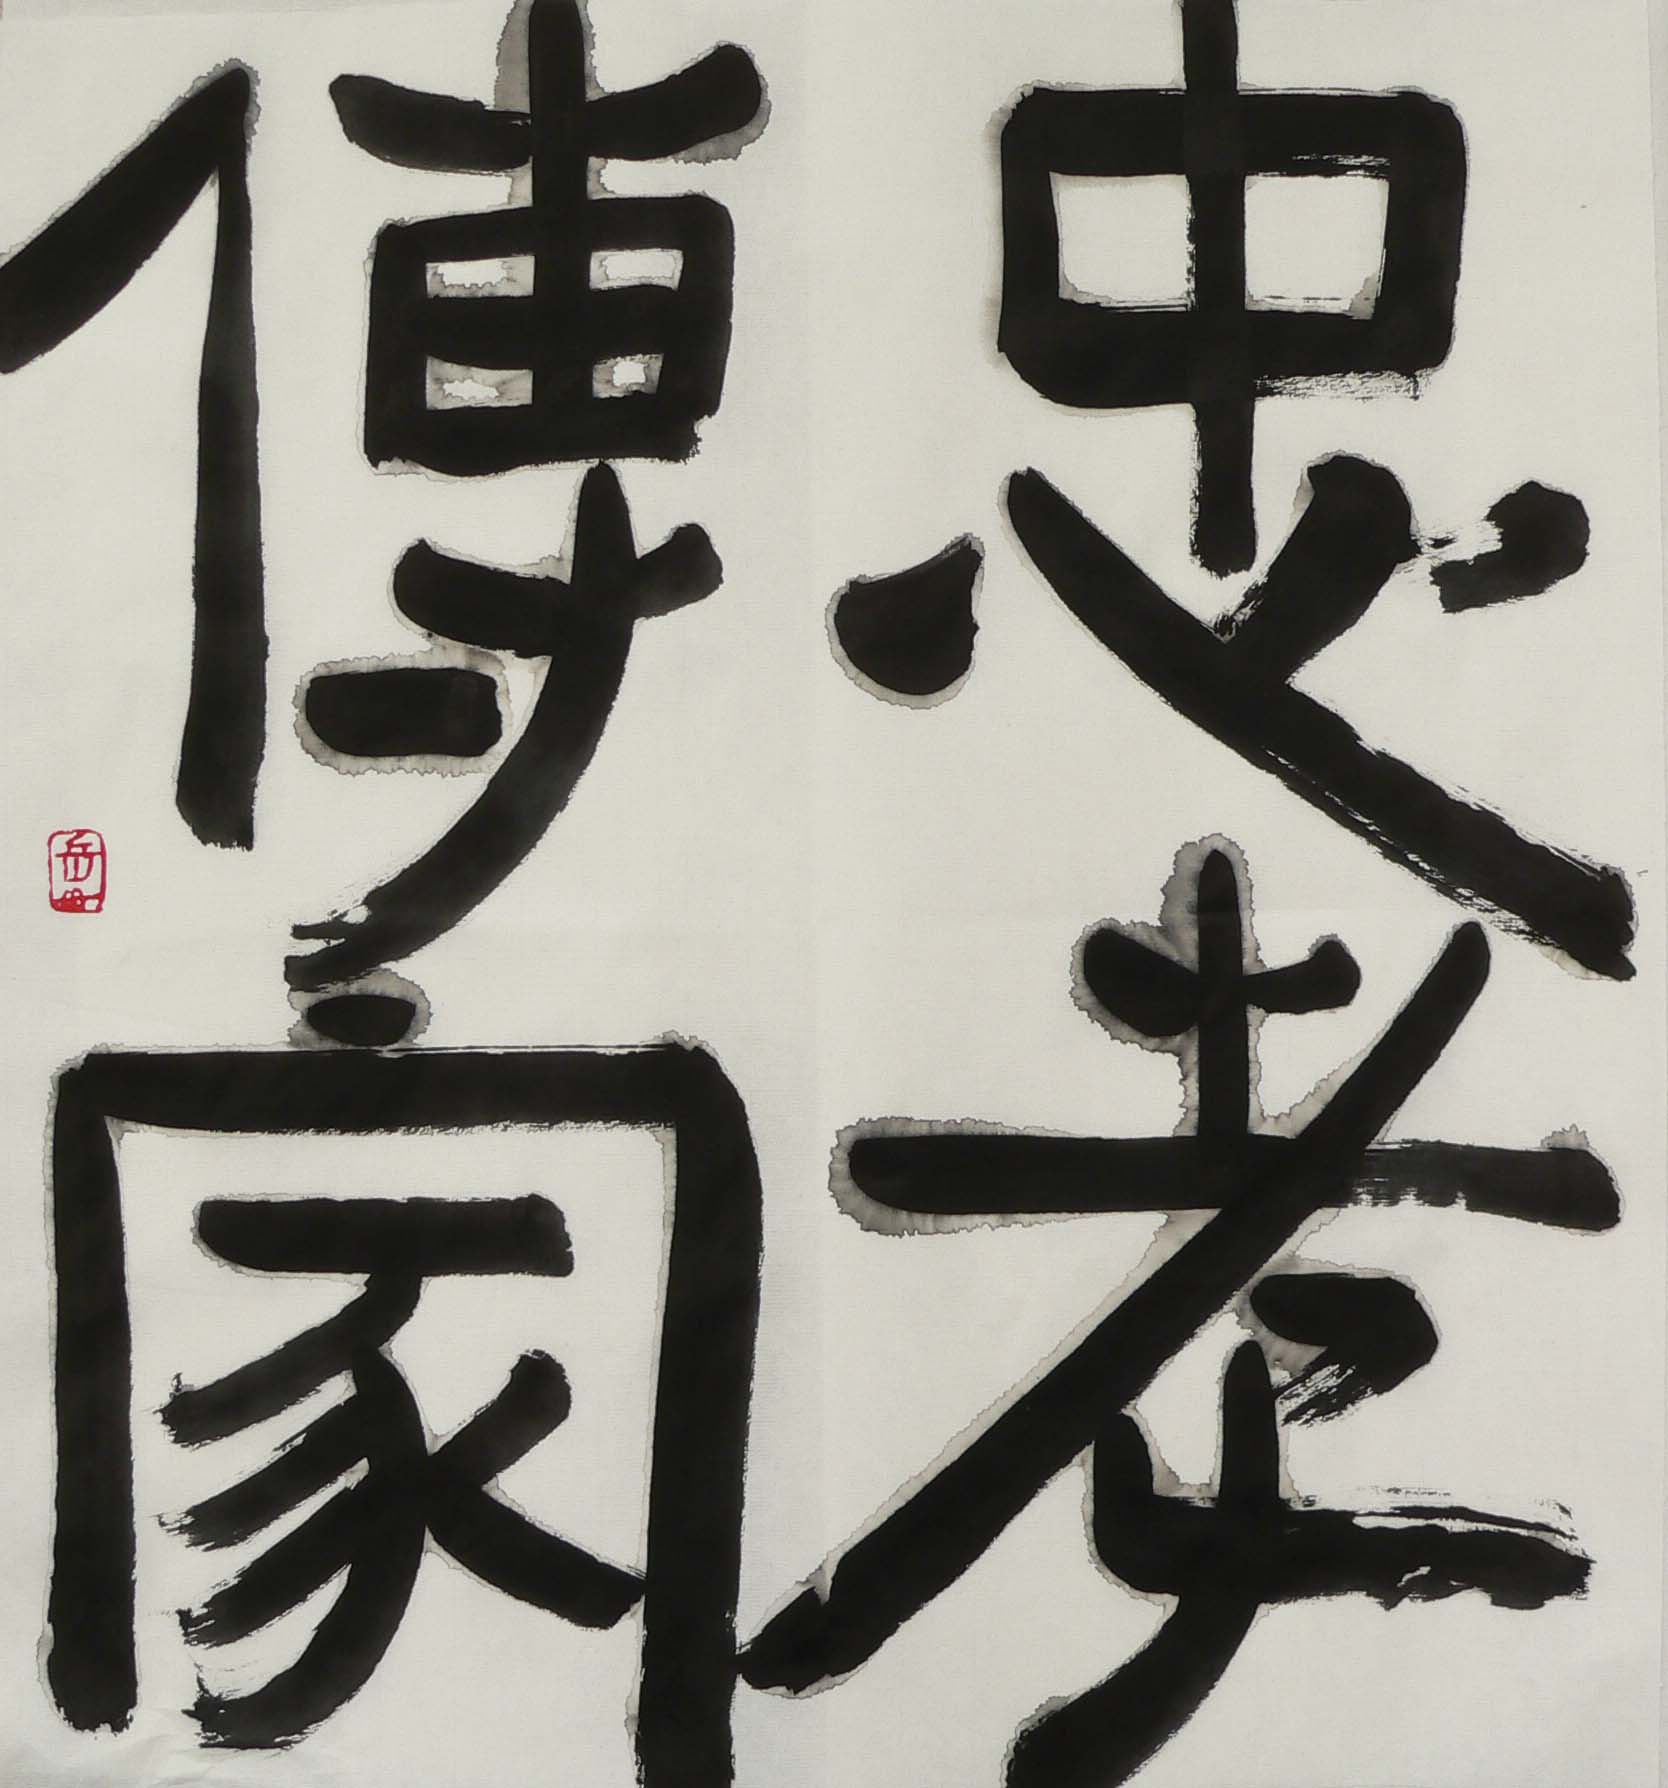 忠孝
傳家
岳